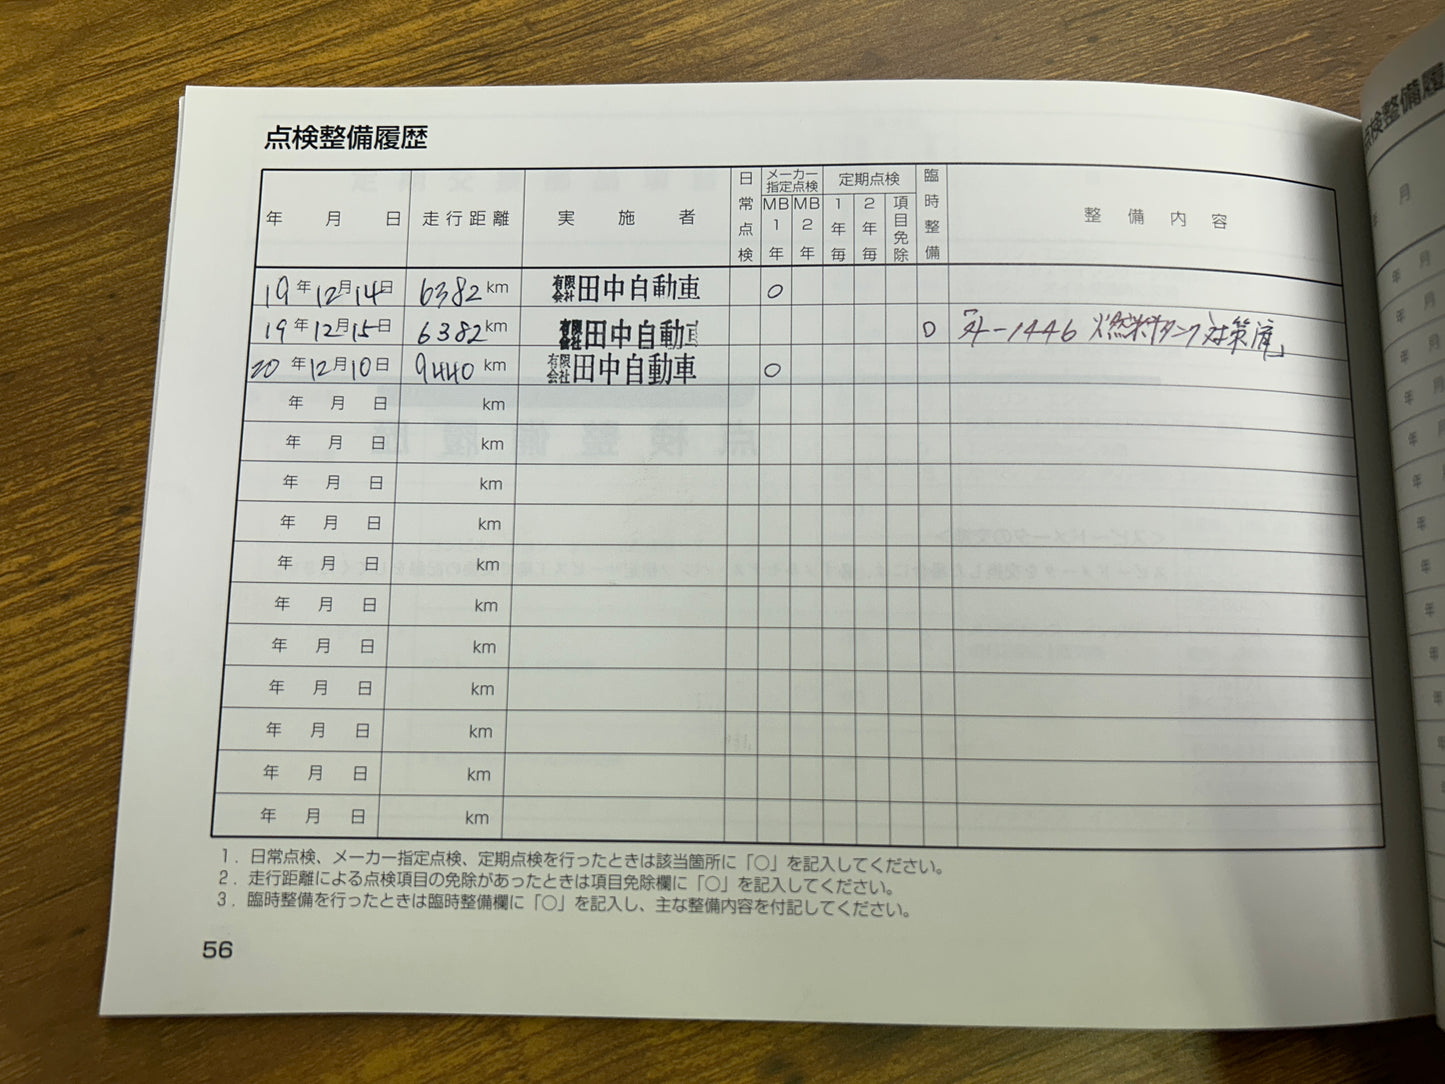 点検整備履歴
年 月 日 走行距離 実施者 日常点検 メーカー指定点検 MB1年 MB2年 定期点検 1年毎 2年毎 項目免除 臨時整備 整備内容
19年12月14日 6382km 有限会社田中自動車 ○
19年12月15日 6382km 有限会社田中自動車 ○ 「外-1446 燃料タンク対策済」
20年12月10日 9440km 有限会社田中自動車 ○
年 月 日 km
年 月 日 km
年 月 日 km
年 月 日 km
年 月 日 km
年 月 日 km
年 月 日 km
年 月 日 km
年 月 日 km
年 月 日 km
年 月 日 km
1．日常点検、メーカー指定点検、定期点検を行ったときは該当箇所に「○」を記入してください。
2．走行距離による点検項目の免除があったときは項目免除欄に「○」を記入してください。
3．臨時整備を行ったときは臨時整備欄に「○」を記入し、主な整備内容を付記してください。
56
点検整備履